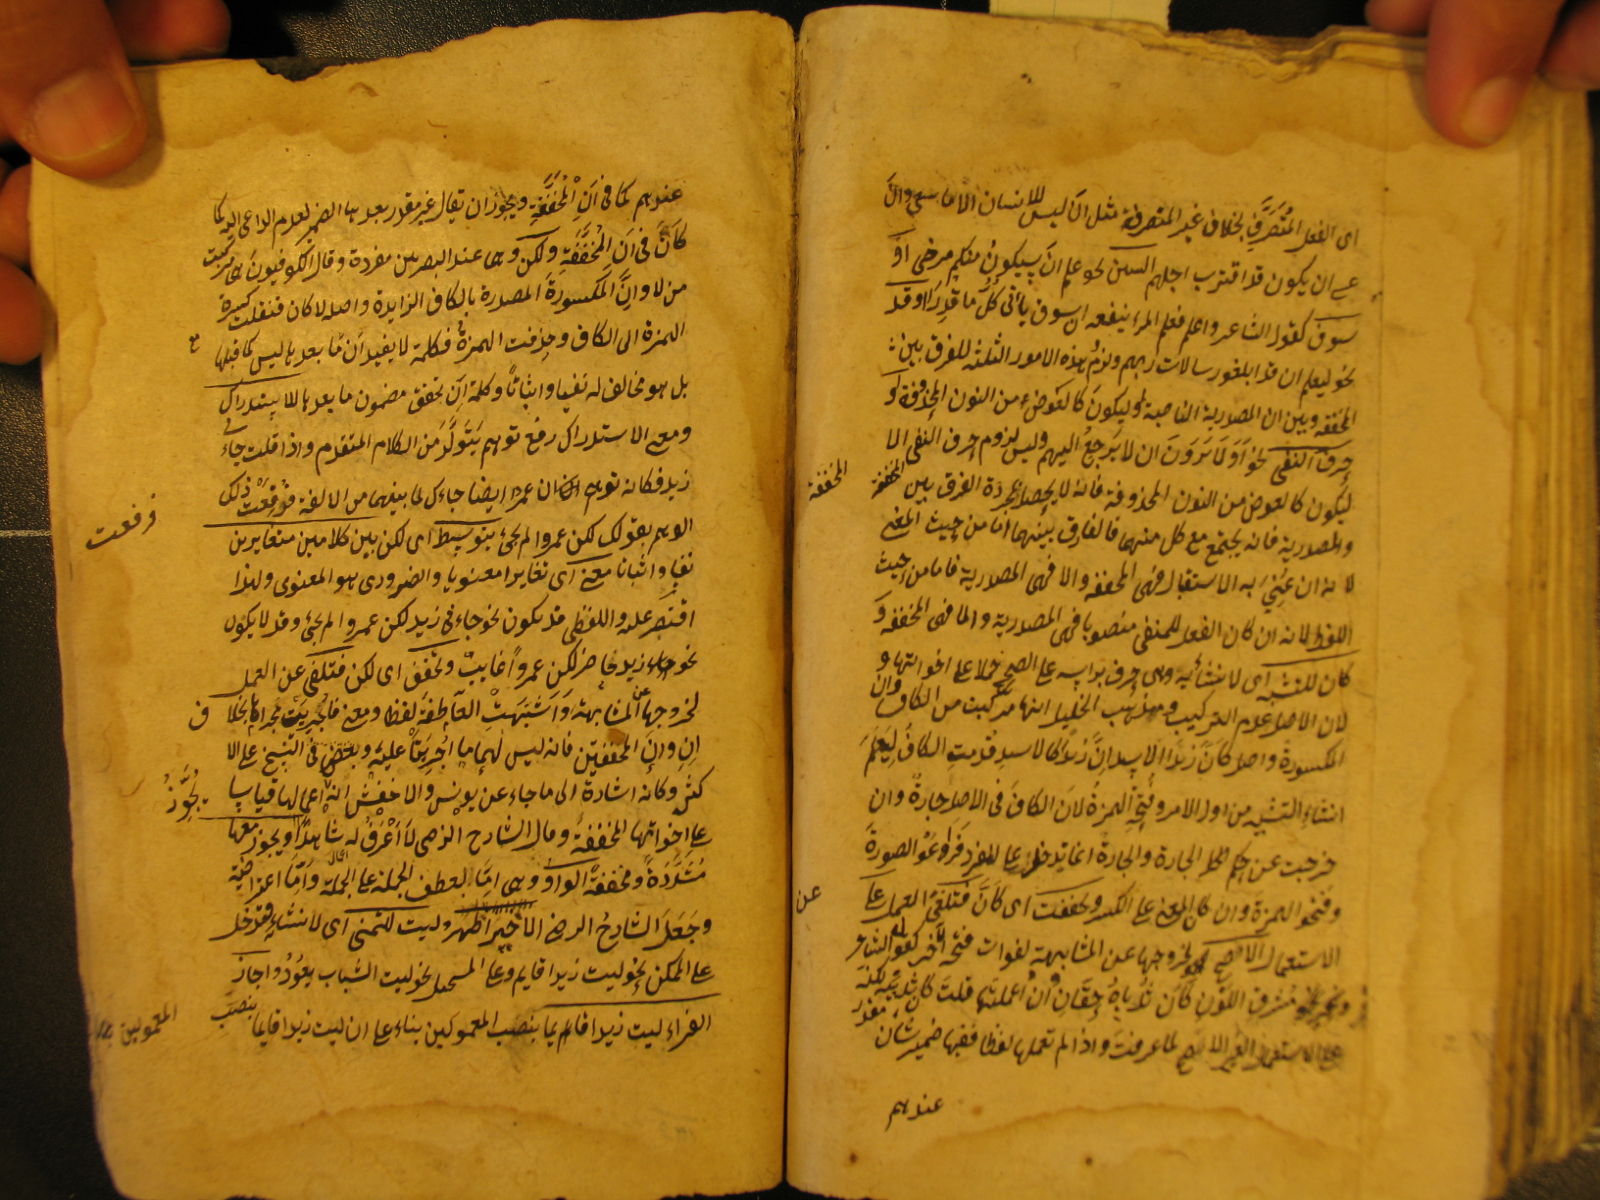 اى الفعل المُتَصَرِّفِ بخلاف غير المتصرفة مثل اَنْ ليس للانسان الّا ما سعى وانْ
عسى ان يكون قد اقترب اجلهم السين نحو علم انْ سيكونُ منكم مرضى اَوْ
سوف كقول الشاعر واعلم فعلم المرء ينفعه ان سوف يأتى كُلُّ ما قُدِرَا اوقد
نحو ليعلم ان قد ابلغوا رسالات ربهم ولزم هذه الامور الثلثة للفرق بين
المخففة وبين ان المصدرية الناصبة وليكون كالعوض من النون المحذوفة وَ
حرف النفى نحو اَوَلا يَرَوْنَ ان لا يَرجعُ اليهم وليس لزوم حرف النفى الا
ليكون كالعوض من النون المحذوفة فانه لا يحصل بمجرده الفرق بين المخففة
والمصدرية فانه يجتمع مع كل منهما فالفارق بينهما امّا من حيث المعنى
لانه ان عُنِىَ به الاستقبال فهى المخففة والا فهى المصدرية فاما من حيث
اللفظ لانه ان كان الفعل المنفى منصوبا فهى المصدرية والا فهى المخففة وَ
كان للتشبيه اى لانشائه وهى حرف براسه على الصحيح حملا على اخواتها و
لان الاصل عدم التركيب ومذهب الخليل انها مركبت من الكاف وان
المكسورة واصل كانّ زيدًا الاسد اِنَّ زيدًا كالاسد قدمت الكافُ لِيُعْلَمَ
انشاء التشبيه من اول الامر وفُتِحَ الهمزةُ لانّ الكافَ فى الاصل جارةٌ وان
خرجت عن حكم الجارة والجارة انما تدخل على المفرد فراعَوُا الصورةَ
وفتحوا الهمزة وان كان المعنى على الكسر وتخففت اى كانَّ فتلغى عن العمل على
الاستعمال الافصح لخروجها عن المشابهة لفوات فتحة الآخر كقول الشاعر
ونحر مشرق اللون كان ثدياه حقان وان اعملتها قلت كان ثدييه لكنه
على الاستعمال الغير الافصح لما عرفت واذا لم تعملها لفظا ففيها ضمير شان مقدر
عندهم
المخففة
عن
عندهم كما فى اَنِ الْمُخَفَّفَةِ ويجوز ان يقال غير مقدر بعدها الضمير لعدم الداعى اليه كما
كانَ فى اَنِ الْمُخَفَّفَةِ ولكن وهى عند البصريين مفردة وقال الكوفيون هى مركبت
من لا وانَّ المكسورة المصدرة بالكاف الزايدة واصله لا كان فنقلت كسرة
الهمزة الى الكاف وحذفت الهمزةُ فكلمة لا يفيد ان ما بعدها ليس كما قبلها
بل هو مخالف له نفيا واثباتا وكلمة اِنَّ تحقق مضمون ما بعدها للاستدراك
ومعنى الاستدراك رفع توهم يَتَولَّدُ من الكلام المتقدم واذا قلت جاءنى
زيد فكانه توهم ان عمرا ايضا جاءك لما بينهما من الالفة فرفعت ذلك
الوهم بقولك لكن عمروا لم يجئ يتوسط اى لكن بين كلامين متغايرين
نفيا واثباتا معنىً اى تغايرا معنويا والضرورى هو المعنوى ولهذا
اقتصر عليه واللفظى قد يكون نحو جاءنى زيد لكن عمروا لم يجئ وقد لا يكون
نحو زيد حاضر لكن عمروًا غايب وتخفف اى لكن فتلغى عن العمل
لخروجها عن المشابهة وَاَشْبَهَتْ العاطفة لفظا ومعنى فاُجريت مجراها بخلاف
اِن واَن المخففتين فانه ليس لهما ما اُجرِيَتا عليه وبعض فى النسخ على الا
كثر وكانه اشارة الى ما جاء عن يونس والاخفش انه يُجوّز اعمالها قياسا
على اخواتها المخففة وقال الشارح الرضى لا اَعْرَفُ له شاهدًا ويجوز معها
مُشَدَّدَةً ومخففةً الواوُ وهى امّا لعطف الجملة على الجملة وامّا اعتراضية
وجَعَلَ الشارحُ الرضى الاخيرَ اظهر وليت للتمنى اى لانشائه فتدخل
على الممكن نحو ليت زيدا قايم وعلى المستحيل نحو ليت الشباب يَعُوْدُ واجاز
الفراء ليت زيدا قايما بنصب المعمولين بناء على ان ليت زيدا قايما بنصب
فرفعت
يُجَوِّزُ
المعمولين